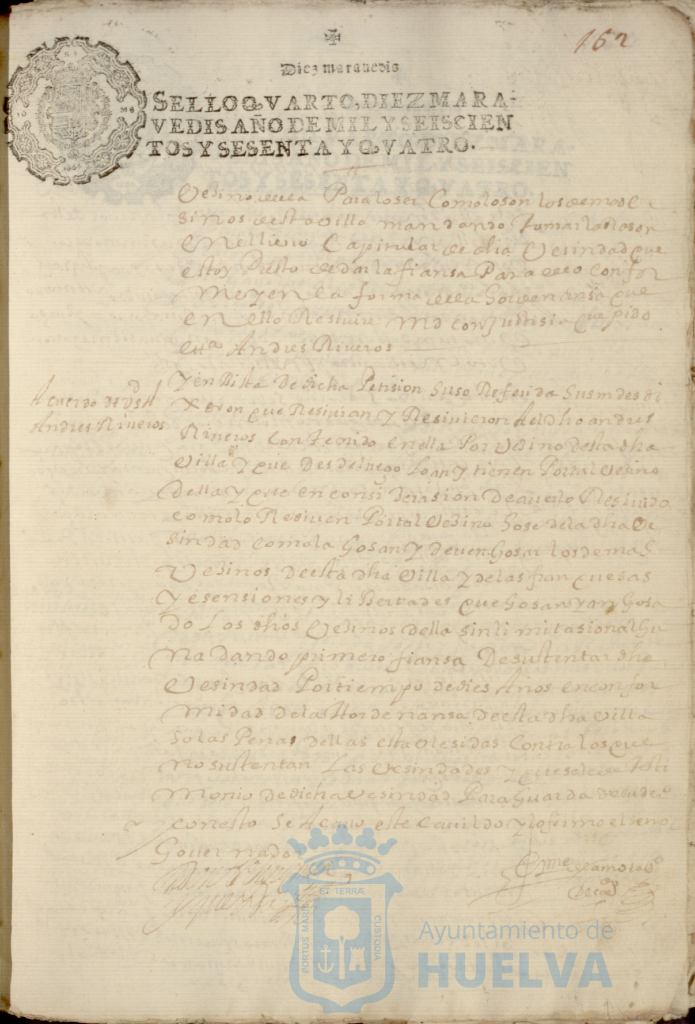 162
Diez marauedis
SELLO QVARTO, DIEZ MARA-
VEDIS AÑO DE MIL Y SEISCIEN
TOS Y SESENTA Y QVATRO.
Vesino della Para loser Como loson los demas Ve
sinos desta villa mandando tomar la Rason
En el livro Capitular de dha Vesindad que
estoy Presto de dar la fiansa Para ello Confor
me y en la forma
en ello Resivire Md con Justisia que pido
Andres Riveros
Acuerdo
Andres Riveros
Y en Vista de dicha Petision Suso Referida Sus mdes di
xeron que Resivian y Resivieron Al dho andres
Riveros Contenido en ella Por Vesino desta dha
Villa y que Desde luego Loan y tienen Por tal Vesino
della y que en considerasion de averlo Resivido
como lo Resiven Por tal Vesino Gose de la dha Ve
sindad como la Gosan y deven Gosar los demas
Vesinos desta dha Villa y de las franquesas
y esensiones y libertades que Gosan y an Gosa
do Los dhos Vesinos della sin limitasion algu
na dando primero fiansa De sustentar dha
Vesindad Por tiempo de dies Años en confor
midad de la Hordenansa desta dha Villa
so las Penas dellas establesidas Contra los que
no sustentan Las Vesindades y que se le de testi
monio de dicha vesindad Para Guarda de su dro
con esto Se Acavo este Cavildo y lo firmo el senor
Governador
PORTUS MARIS
ET TERRAE
CUSTODIA
Ayuntamiento de
HUELVA